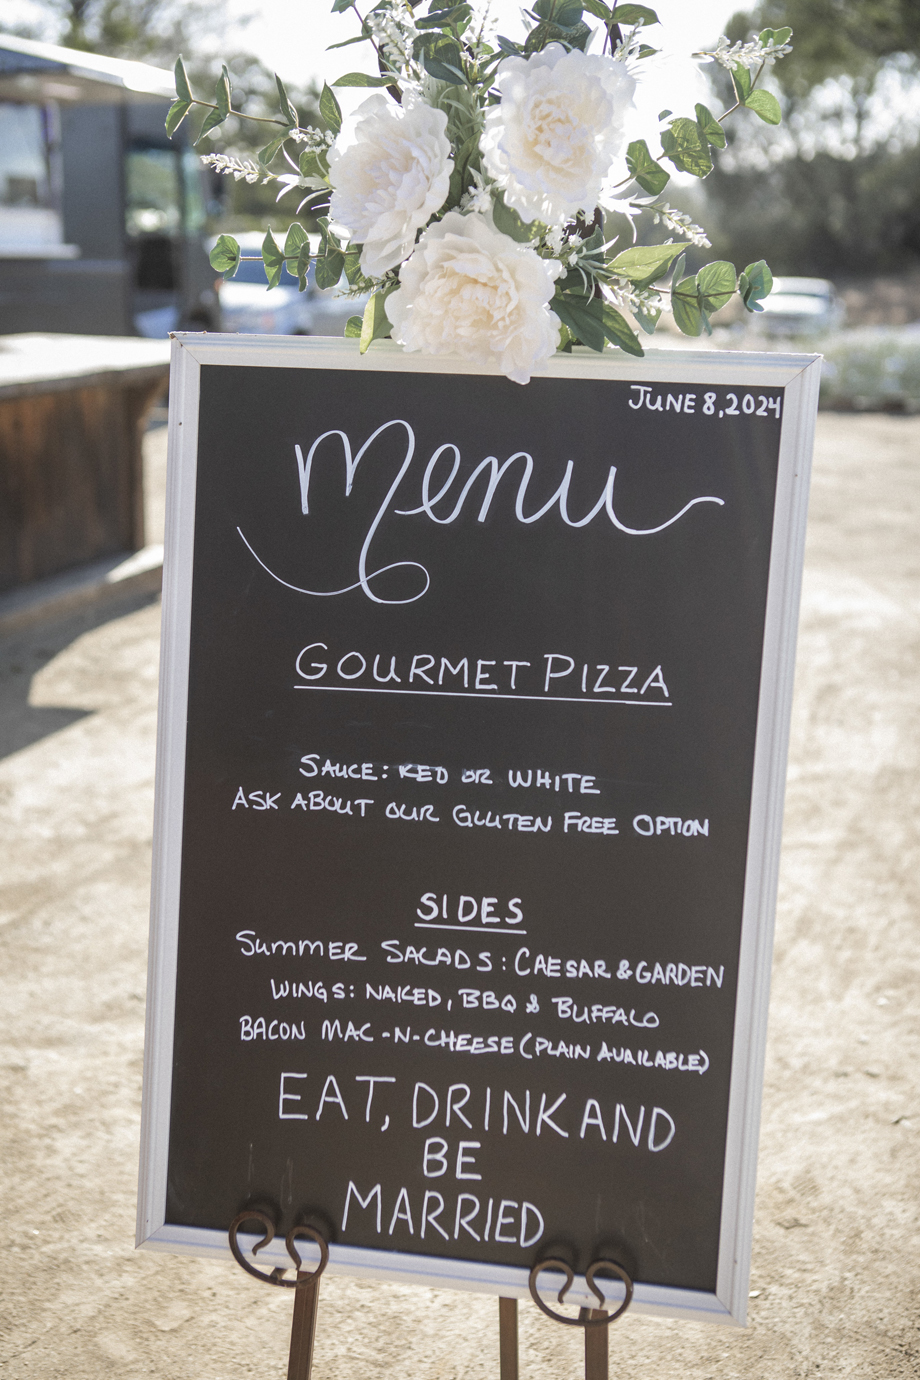 JUNE 8, 2024
Menu
GOURMET PIZZA
SAUCE: RED OR WHITE
ASK ABOUT OUR GLUTEN FREE OPTION
SIDES
SUMMER SALADS: CAESAR & GARDEN
WINGS: NAKED, BBQ & BUFFALO
BACON MAC-N-CHEESE (PLAIN AVAILABLE)
EAT, DRINK AND
BE
MARRIED